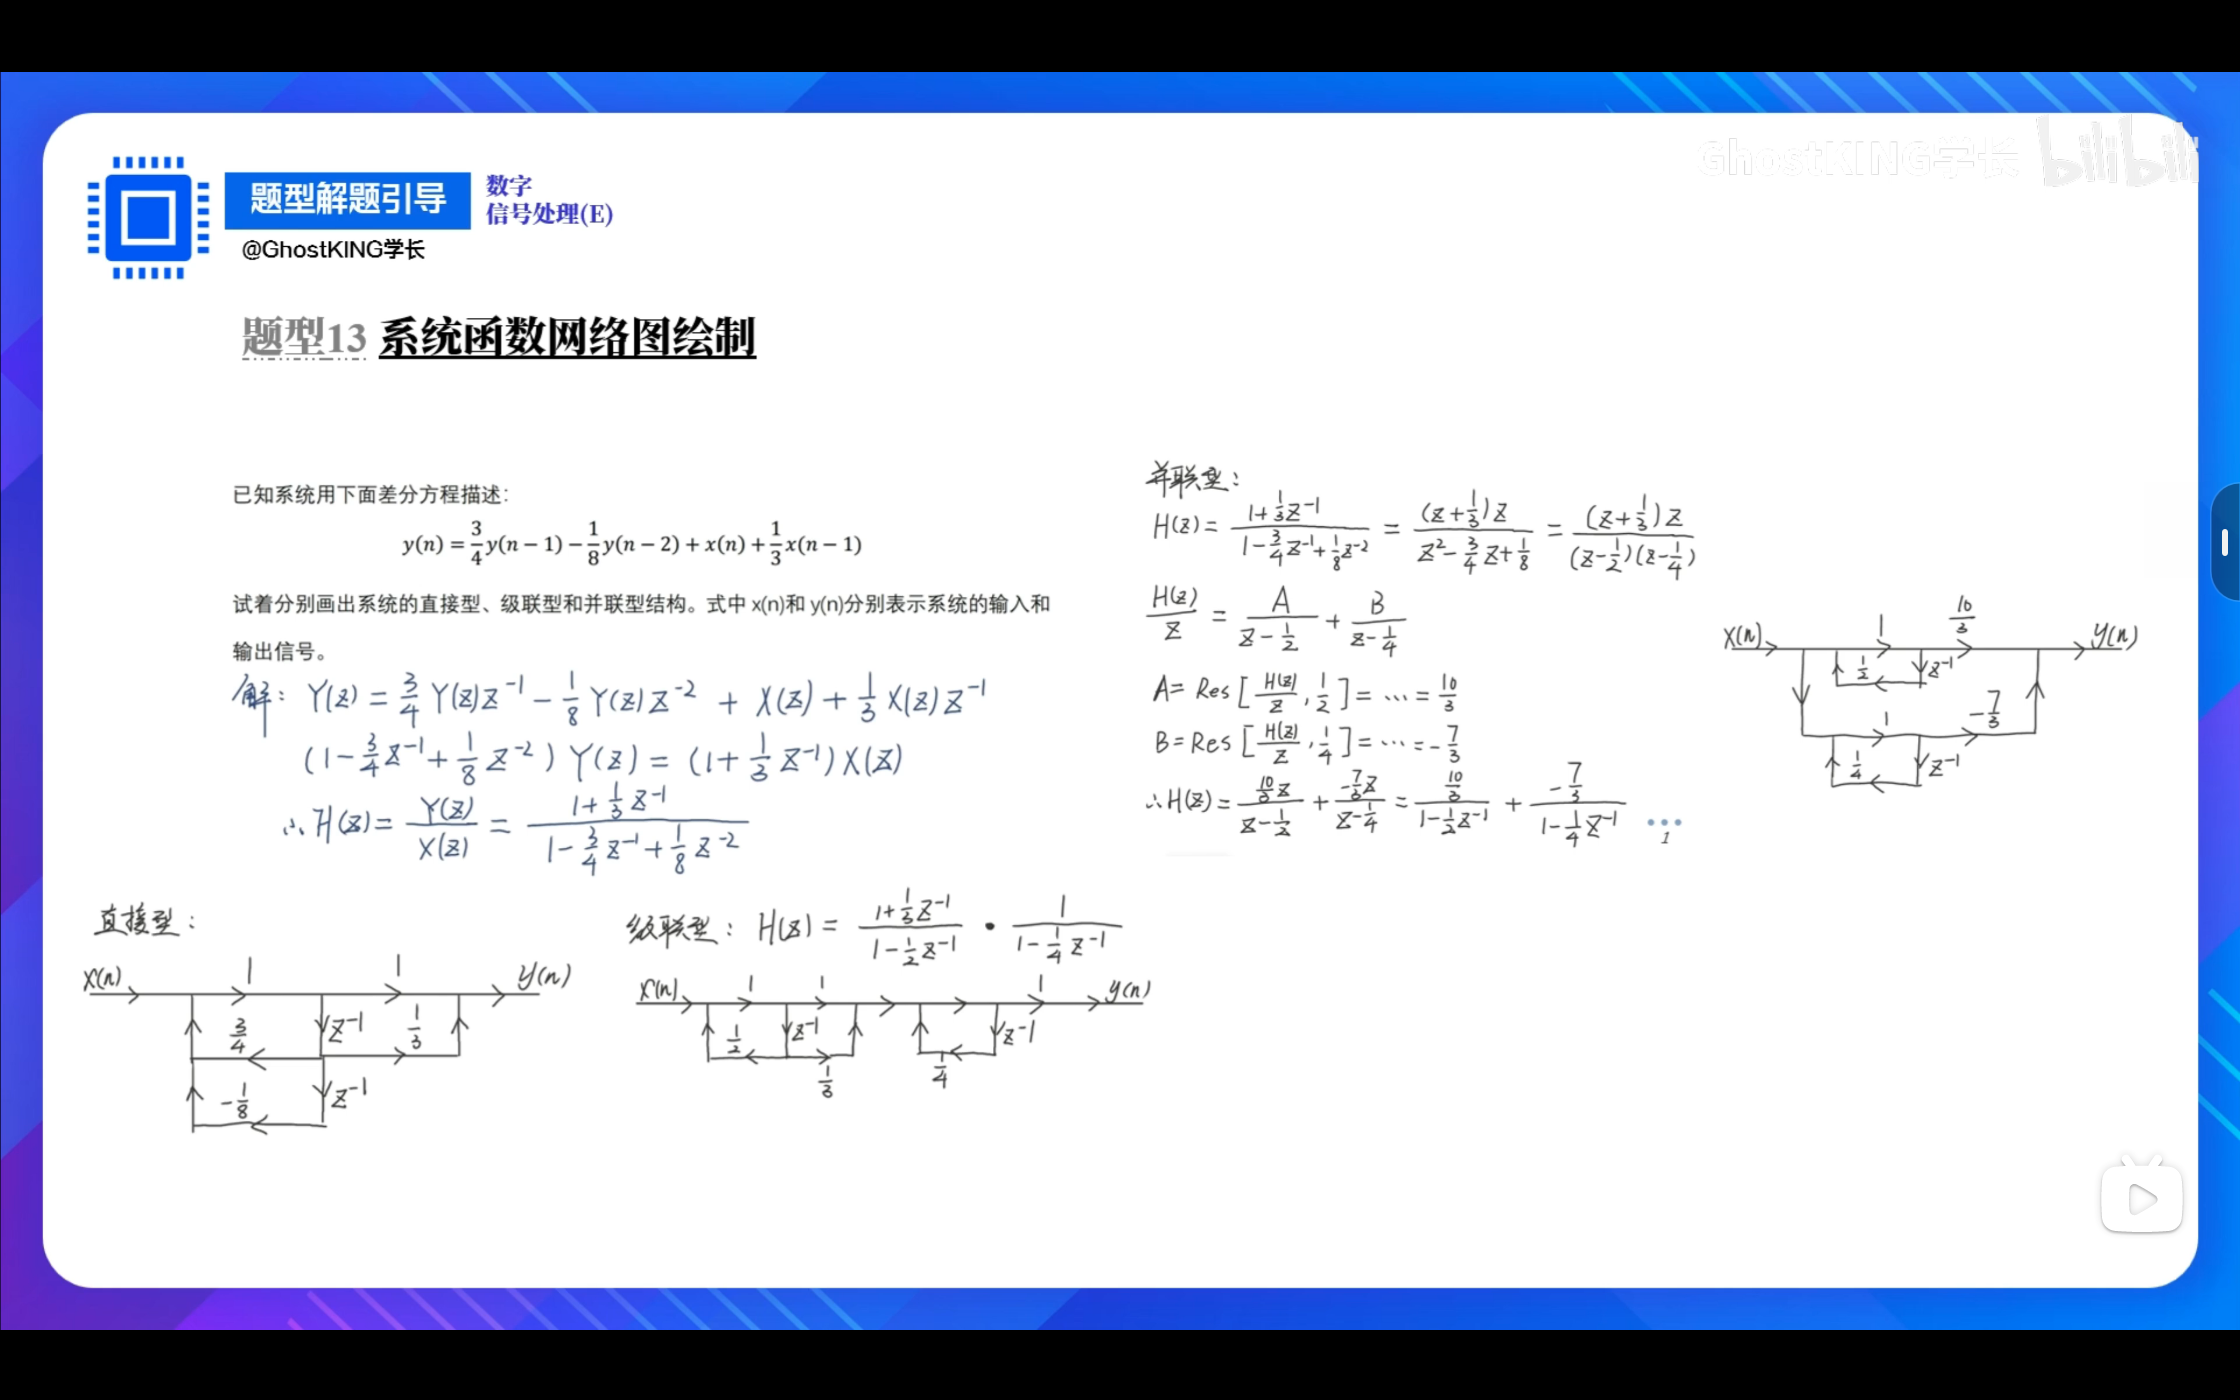 GhostKING学长 bilibili
题型解题引导
数字
信号处理(E)
@GhostKING学长
题型13 系统函数网络图绘制
已知系统用下面差分方程描述：
y(n) = 3/4 y(n − 1) − 1/8 y(n − 2) + x(n) + 1/3 x(n − 1)
试着分别画出系统的直接型、级联型和并联型结构。式中 x(n)和 y(n)分别表示系统的输入和
输出信号。
解: Y(z) = 3/4 Y(z)z^-1 − 1/8 Y(z)z^-2 + X(z) + 1/3 X(z)z^-1
(1 − 3/4 z^-1 + 1/8 z^-2) Y(z) = (1 + 1/3 z^-1) X(z)
∴ H(z) = Y(z)/X(z) = (1 + 1/3 z^-1)/(1 − 3/4 z^-1 + 1/8 z^-2)
直接型:
x(n) 1 1 y(n)
3/4 z^-1 1/3
−1/8 z^-1
级联型: H(z) = (1 + 1/3 z^-1)/(1 − 1/2 z^-1) · 1/(1 − 1/4 z^-1)
x(n) 1 1 1 y(n)
1/2 z^-1 z^-1
1/3 1/4
并联型:
H(z) = (1 + 1/3 z^-1)/(1 − 3/4 z^-1 + 1/8 z^-2) = (z + 1/3)z/(z^2 − 3/4 z + 1/8) = (z + 1/3)z/((z − 1/2)(z − 1/4))
H(z)/z = A/(z − 1/2) + B/(z − 1/4)
A = Res[H(z)/z, 1/2] = ... = 10/3
B = Res[H(z)/z, 1/4] = ... = −7/3
∴ H(z) = 10/3 z/(z − 1/2) + −7/3 z/(z − 1/4) = 10/3/(1 − 1/2 z^-1) + −7/3/(1 − 1/4 z^-1) ...
1
x(n) 1 10/3 y(n)
1/2 z^-1
1 −7/3
1/4 z^-1